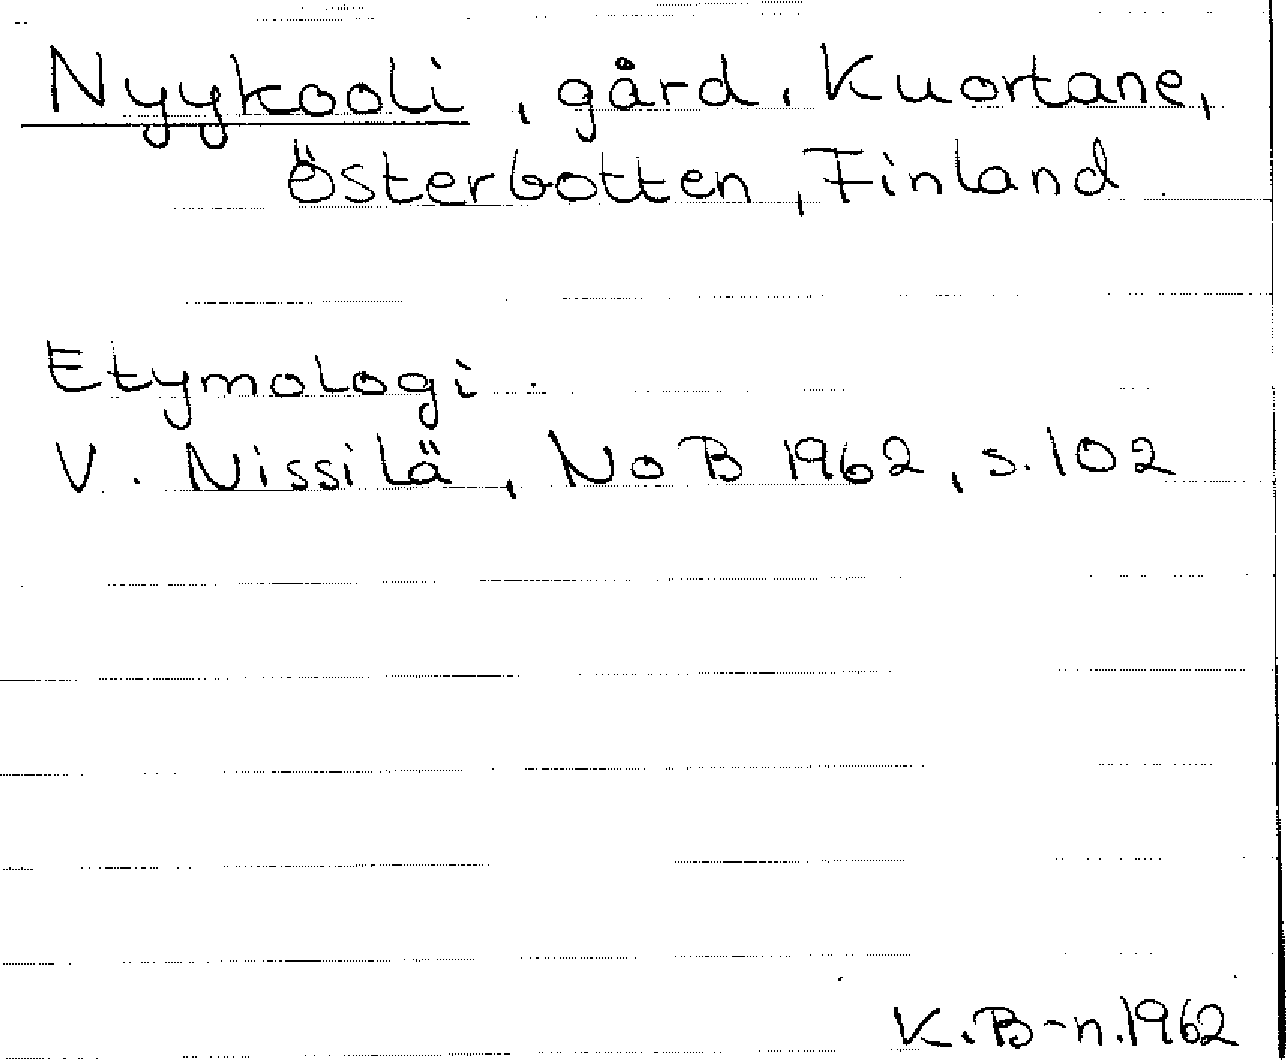 Nyykooli, gård, Kuortane,
Österbotten, Finland
Etymologi.
V. Nissilä, NoB 1962, s. 102
K.B-n. 1962